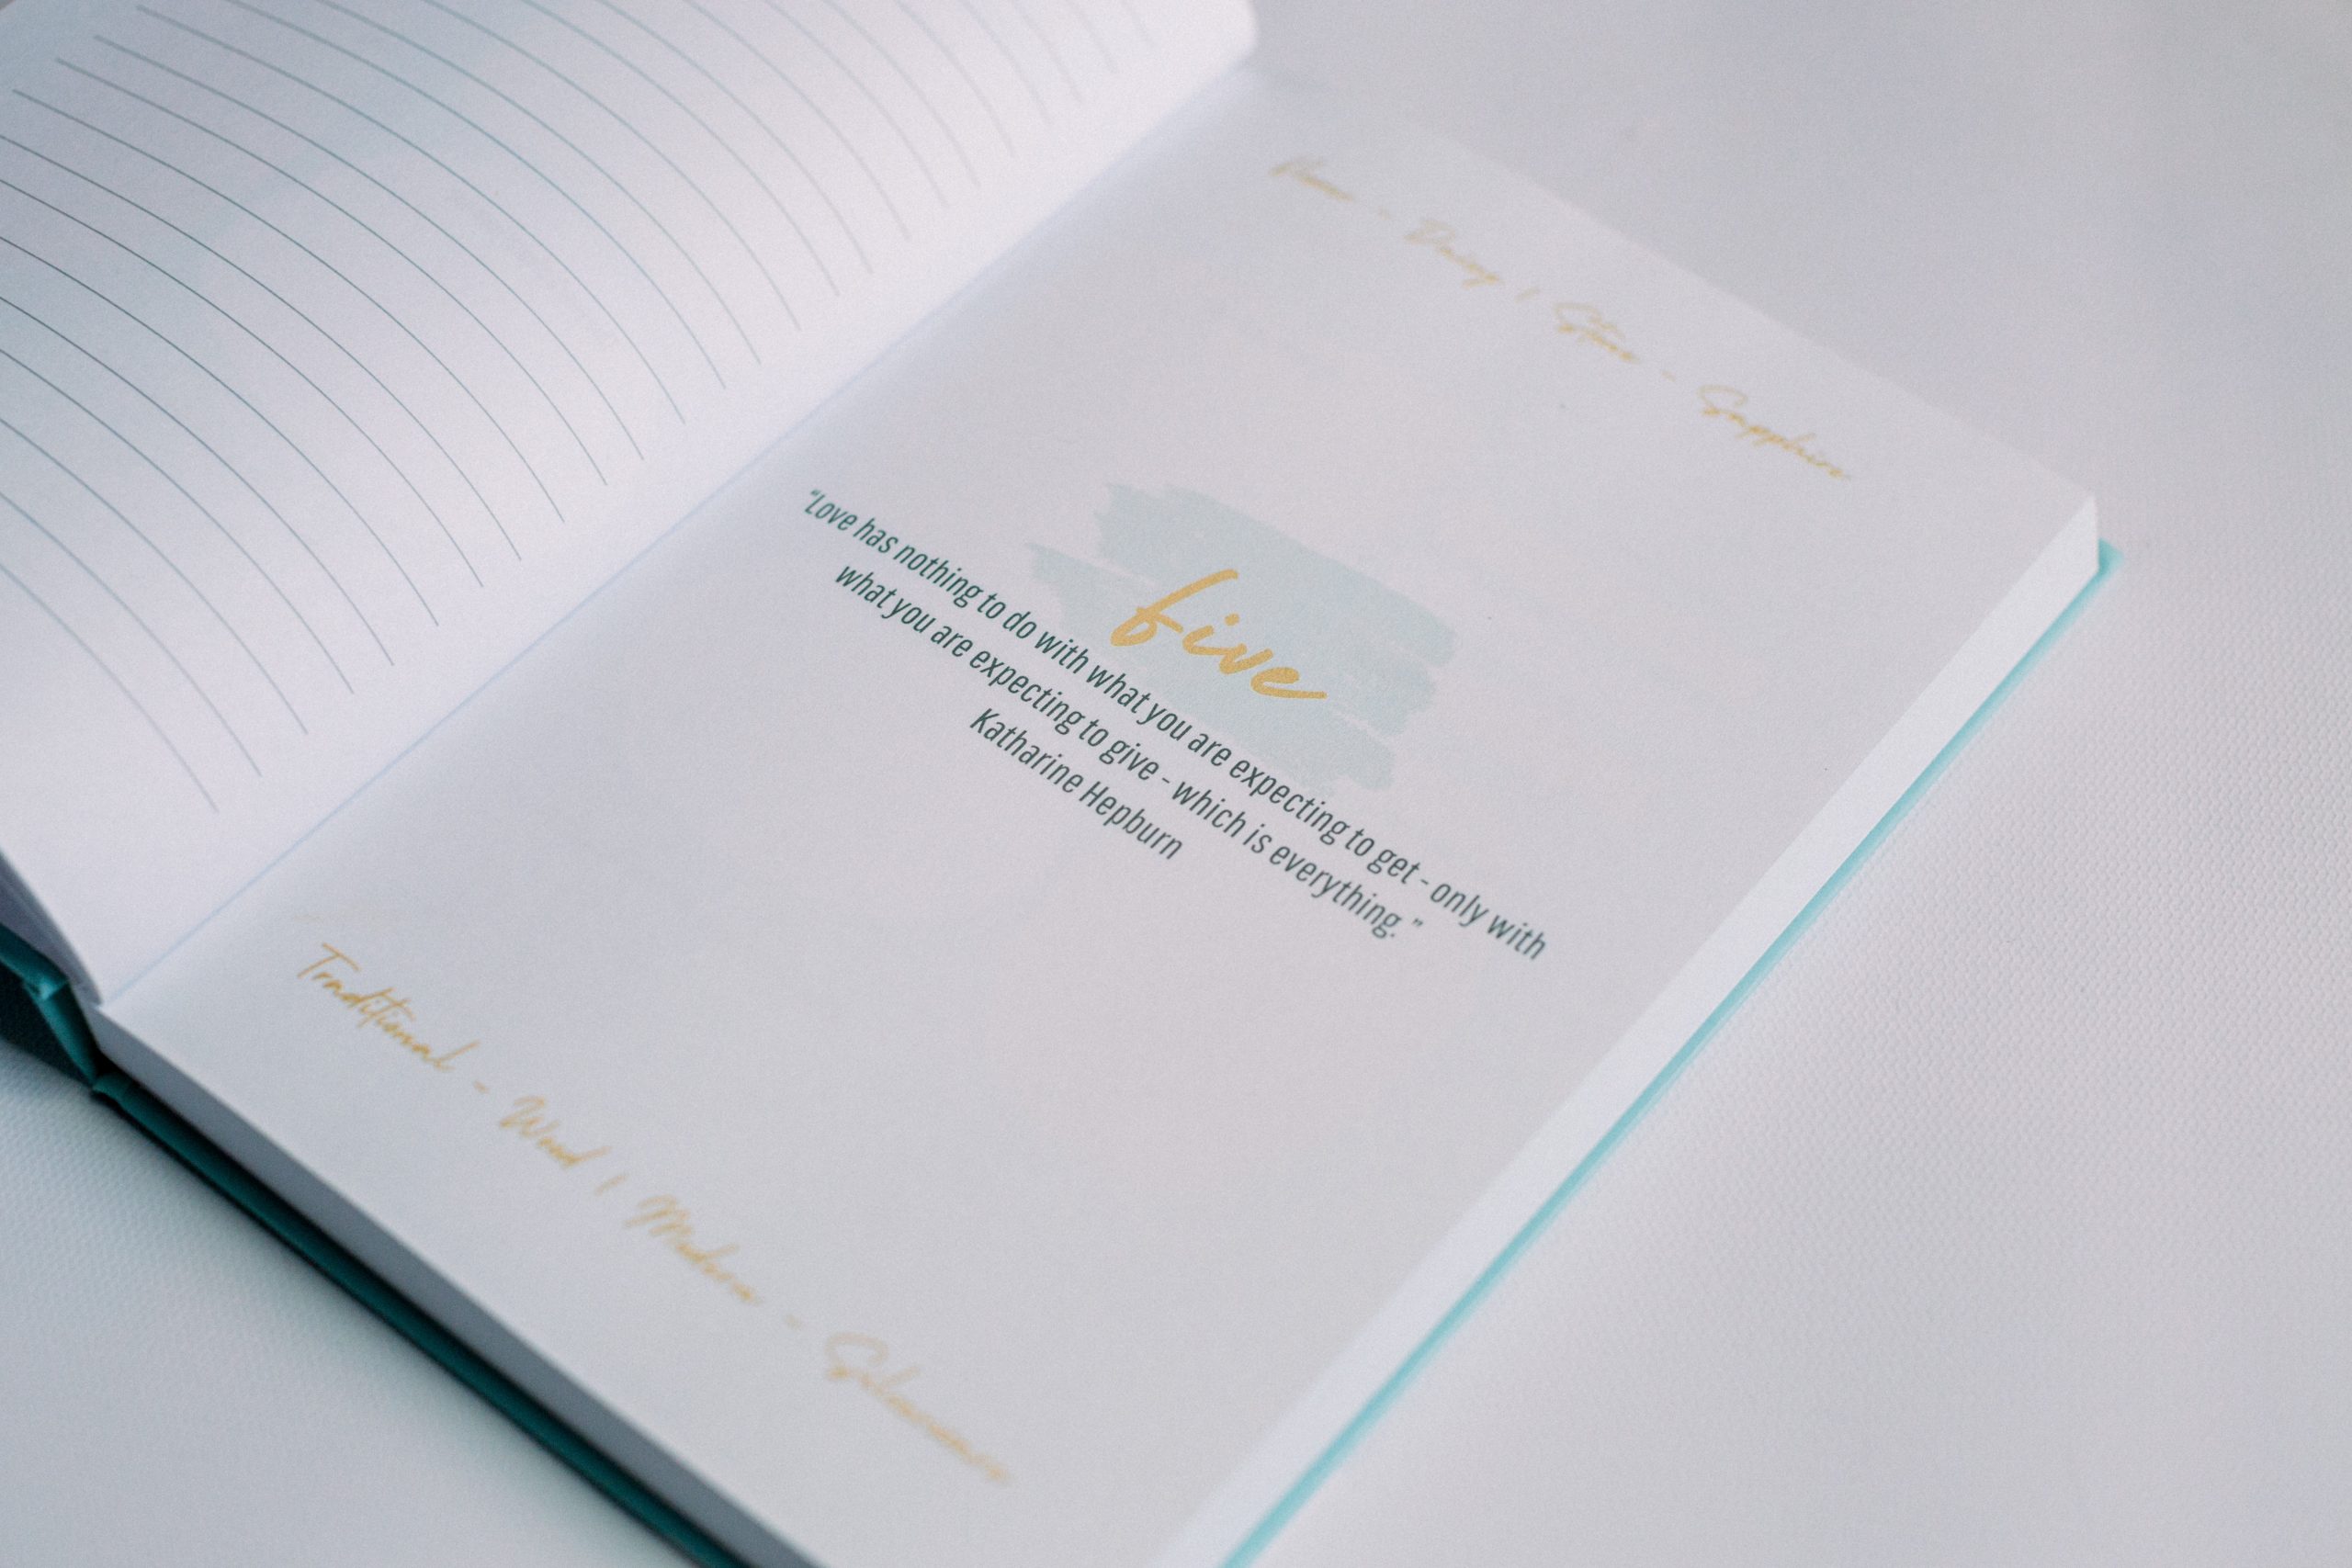 Flower - Daisy | Stone - Sapphire
five
"Love has nothing to do with what you are expecting to get - only with
what you are expecting to give - which is everything."
Katharine Hepburn
Traditional - Wood | Modern - Silverware